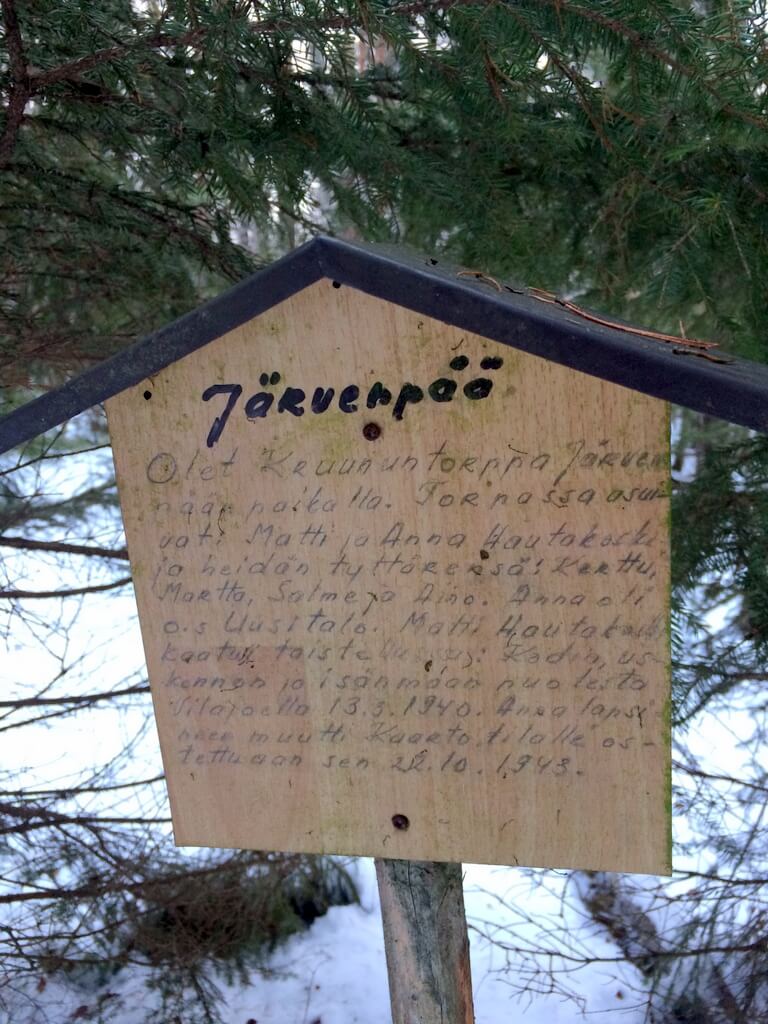 Järvenpää
Olet Kruununtorppa Järven
pään paikalla. Torpassa asui-
vat: Matti ja Anna Hautakoski
ja heidän tyttärensä: Kerttu,
Martta, Salme ja Aino. Anna oli
o.s Uusitalo. Matti Hautakoski
kaatui taistellussa: Kodin, us-
konnon ja isänmaan puolesta
13.3.1940. Anna lapsi-
neen muutti Kaarto tilalle os-
tettuaan sen 22.10.1943.